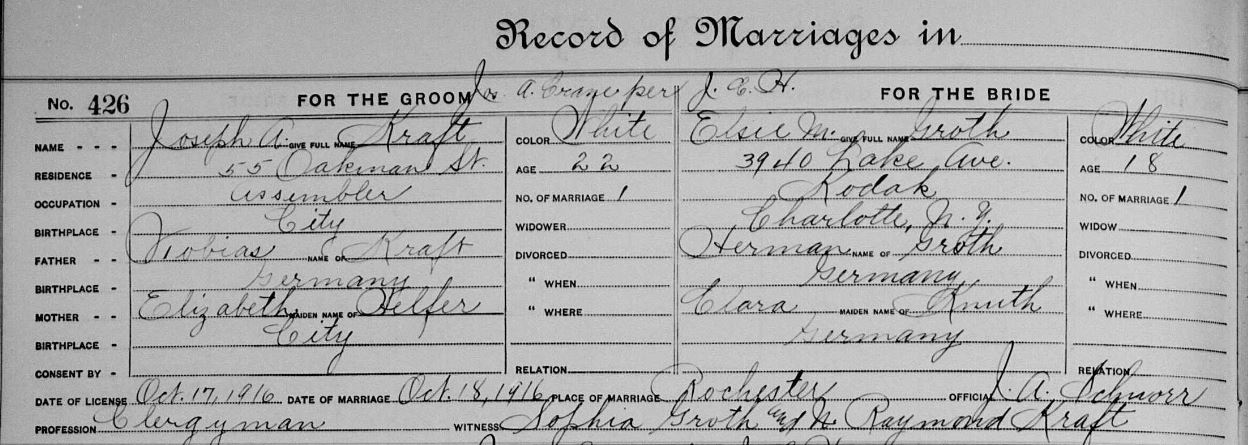 Record of Marriages in
No. 426 FOR THE GROOM Jos. A. Crane per J. E. H. FOR THE BRIDE
NAME - - - Joseph A. GIVE FULL NAME Kraft COLOR White Elsie M. GIVE FULL NAME Groth COLOR White
RESIDENCE - 55 Oakman St. AGE 22 3940 Lake Ave. AGE 18
OCCUPATION - Assembler NO. OF MARRIAGE 1 Kodak NO. OF MARRIAGE 1
BIRTHPLACE - City WIDOWER Charlotte, N.Y. WIDOW
FATHER - - Tobias NAME OF Kraft DIVORCED Herman NAME OF Groth DIVORCED
BIRTHPLACE - Germany " WHEN Germany " WHEN
MOTHER - - Elizabeth MAIDEN NAME OF Helfer " WHERE Clara MAIDEN NAME OF Knuth " WHERE
BIRTHPLACE - City Germany
CONSENT BY - RELATION RELATION
DATE OF LICENSE Oct. 17, 1916 DATE OF MARRIAGE Oct. 18, 1916 PLACE OF MARRIAGE Rochester OFFICIAL J. A. Schnorr
PROFESSION Clergyman WITNESS Sophia Groth and N. Raymond Kraft